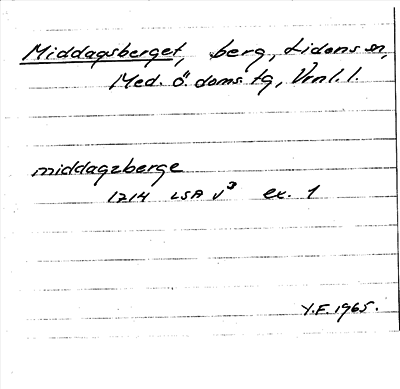 Middagsberget, berg, Lidens sn,
Med. ö. doms. tg, Vnl. l.
middagzberge
1714 LSA V³ ex. 1
Y.F. 1965.